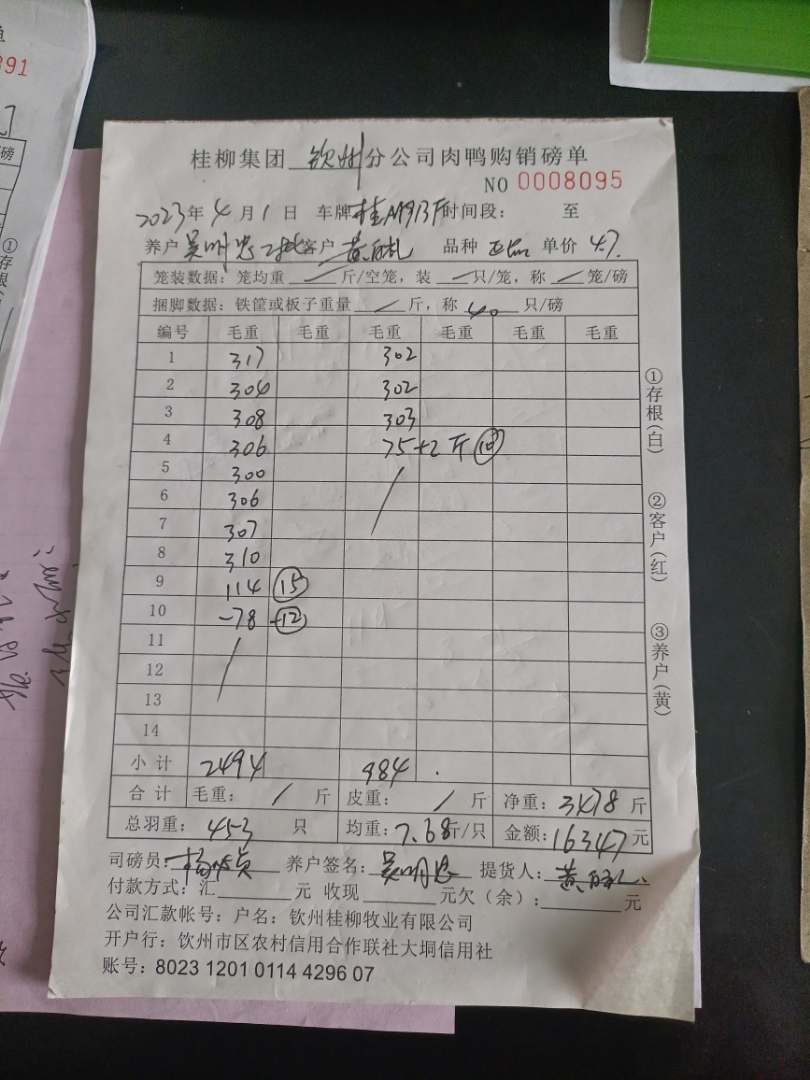 391
桂柳集团 钦州 分公司肉鸭购销磅单
NO 0008095
2023年4月1日 车牌 桂 时间段: 至
养户 吴明忠 客户 黄 品种 正品 单价 4.7
笼装数据: 笼均重 / 斤/空笼, 装 / 只/笼, 称 / 笼/磅
捆脚数据: 铁筐或板子重量 / 斤, 称 40 只/磅
编号 毛重 毛重 毛重 毛重 毛重 毛重
1 317 302
2 304 302
3 308 303
4 306 75+2斤 ⑩
5 300 /
6 306
7 307
8 310
9 114 ⑮
10 -78 -⑫
11 /
12
13
14
小计 2494 984
合计 毛重: / 斤 皮重: / 斤 净重: 3478 斤
总羽重: 453 只 均重: 7.68斤/只 金额: 16347元
司磅员: 杨 养户签名: 吴明忠 提货人: 黄
付款方式: 汇 元 收现 元欠(余): 元
公司汇款帐号: 户名: 钦州桂柳牧业有限公司
开户行: 钦州市区农村信用合作联社大垌信用社
账号: 8023 1201 0114 4296 07
①存根(白)
②客户(红)
③养户(黄)